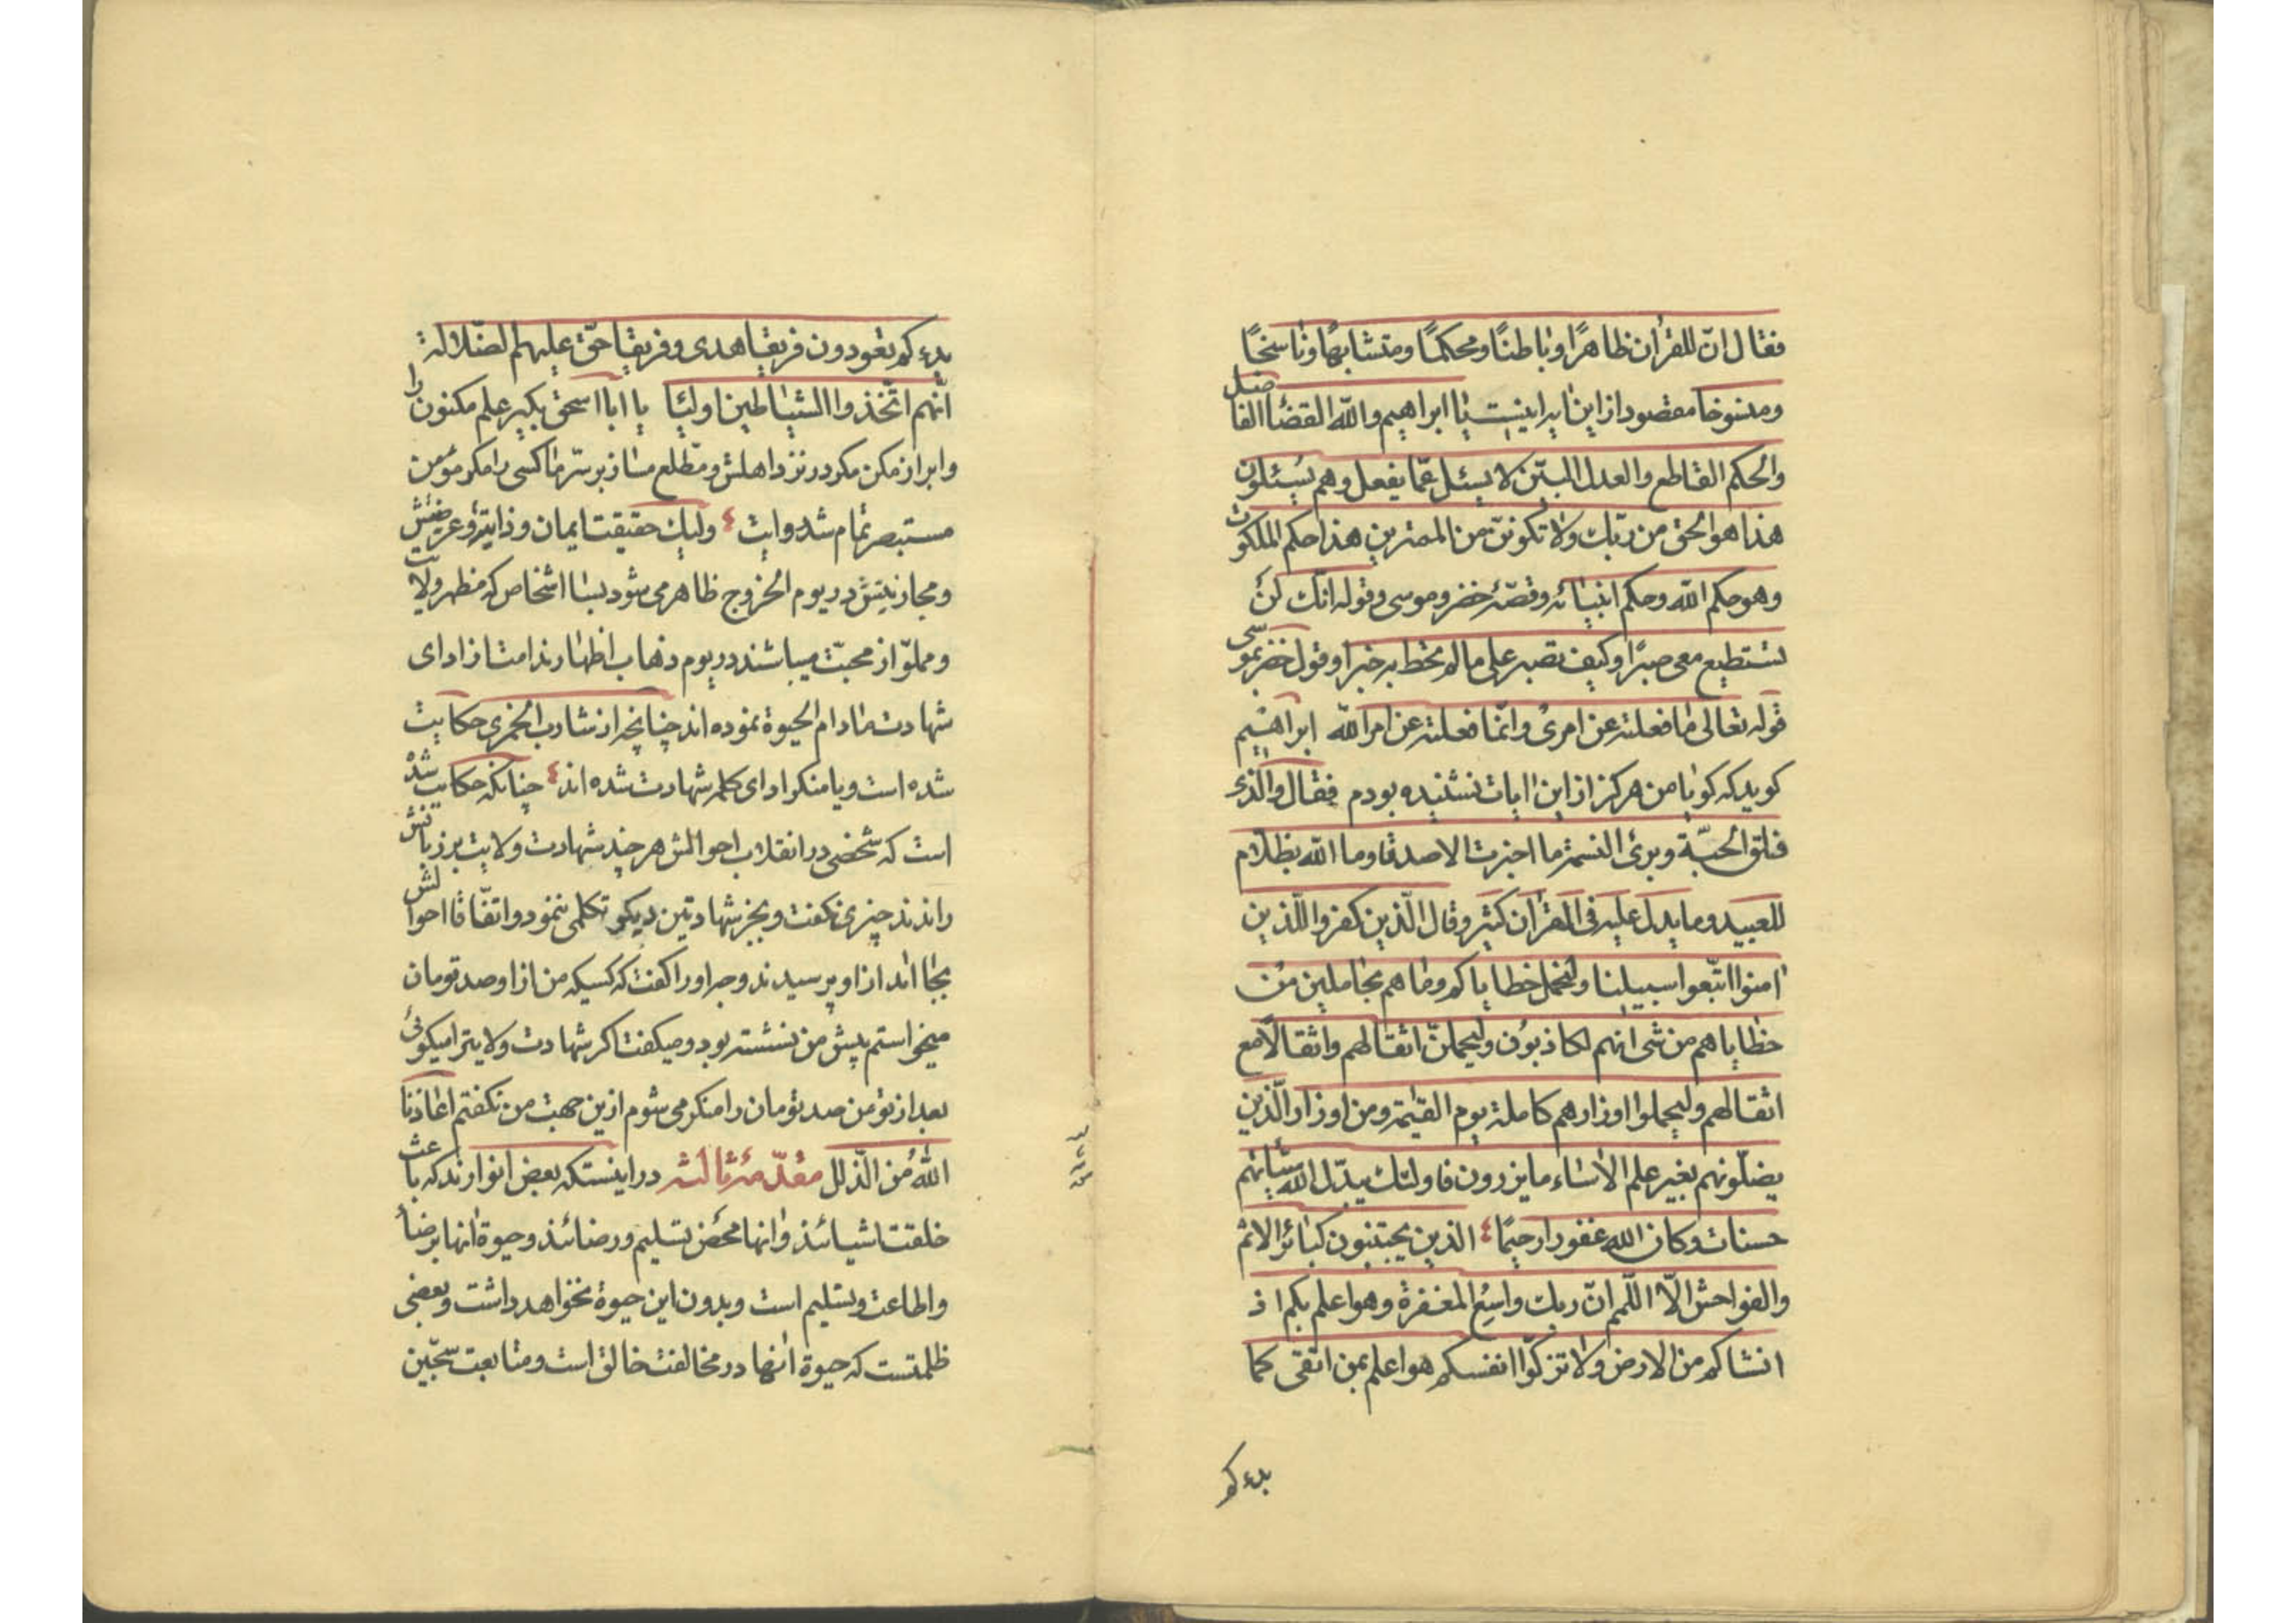 فقال انّ للقرآن ظاهرًا وباطنًا ومحكمًا ومتشابهًا وناسخًا
ومنسوخا مقصود از این ایه اینست یا ابراهیم والله القضأ الفاصل
والحكم القاطع والعدل البیّن لا یسئل عمّا یفعل وهم یسئلون
هذا هو الحق من ربّك ولا تكوننّ من الممترین هذا حكم الملكوت
وهو حكم الله وحكم انبیائه وقصّهٔ خضر وموسی وقوله انّك لن
تستطیع معی صبرًا وكیف تصبر علی ما لم تحط به خبرا وقول خضر بموسی
قوله تعالی ما فعلته عن امریُ وانّما فعلته عن امر الله ابراهیم
كوید كه كویا من هركز از این ایات نشنیده بودم فقال والّذی
فلق الحبّة وبرئ النسمة ما اخبرت الا صدقا وما الله بظلّام
للعبید وما یدل علیه فی القرآن كثیر وقال الّذین كفروا للّذین
آمنوا اتّبعوا سبیلنا ولنحمل خطایاكم وما هم بحاملین من
خطایاهم من شی انهم لكاذبون ولیحملنّ اثقالهم واثقالًا مع
اثقالهم ولیحملوا اوزارهم كاملة یوم القیٰمة ومن اوزار الّذین
یضلّونهم بغیر علم الا ساء ما یزرون فاولئك یبدّل الله سیّئاتهم
حسنات وكان الله غفورا رحیمًا ٤ الذین یجتنبون كبائر الاثم
والفواحش الّا اللّمم انّ ربك واسع المغفرة وهو اعلم بكم اذ
انشاكم من الارض ولا تزكّوا انفسكم هو اعلم بمن اتّقی كما
بدء كم
بدءكم تعودون فریقا هدی وفریقا حقّ علیهم الضّلالة
انّهم اتّخذوا الشیاطین اولیٔا یا ابا اسحق بكیر علم مكنون را
وابراز مكن مكر در نزد اهلش ومطّلع مساز بر سرّ ما كسی را مكر مؤمن
مستبصر تمام شد روایت ٤ ولیك حقیقت ایمان وذاتیّة وعریضتش
ومجازیتش در یوم الخروج ظاهر می شود بسا اشخاص كه مظهر ولایت
ومملوّ از محبّت میباشند در یوم ذهاب اظهار ندامت از ادای
شهادت مادام الحیوة نموده اند چنانچه از شارب الخمری حكایت
شده است ویا منكر ادای كلمه شهادت شده اند ٤ چنانكه حكایت شده
است كه شخصی در انقلاب احوالش هر چند شهادت ولایت بر زبانش
راندند چیزی نكفت وبجز شهادتین دیكر تكلمی ننمود واتفّاقا احوالش
بجا امد از او پرسیدند وجه او را كفت كه كسیكه من از او صد تومان
میخواستم پیش من نشسته بود ومیكفت اكر شهادت ولایت را میكوئی
بعد از تو من صد تومان را منكر می شوم ازین جهت من نكفتم اعاذنا
الله من الذّلل مقدّمهٔ ثالثه در اینستكه بعض انوارند كه باعث
خلقت اشیائند وانها محض تسلیم ورضائند وحیوة انها برضا
واطاعت وتسلیم است وبدون این حیوة نخواهد داشت وبعضی
ظلمتست كه حیوة انها در مخالفت خالق است ومتابعت سجّین